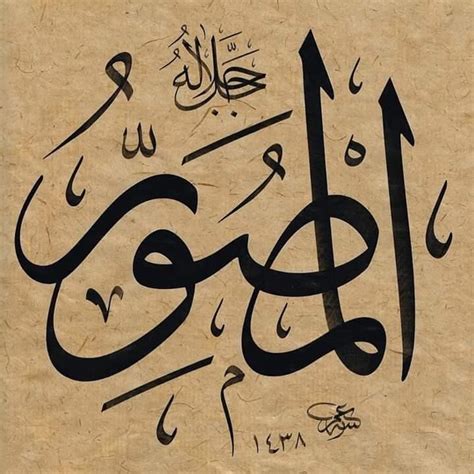 جل جلاله
المصور
١٤٣٨